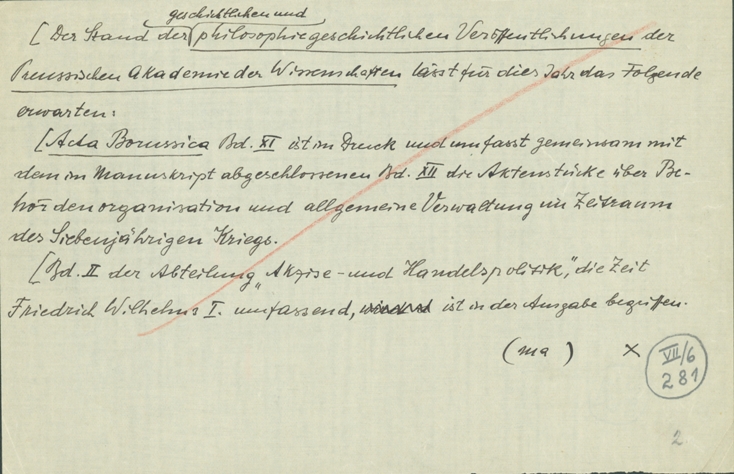 geschichtlichen und
[Der Stand der philosophiegeschichtlichen Veröffentlichungen der
Preussischen Akademie der Wissenschaften lässt für dies Jahr das Folgende
erwarten:
[Acta Borussica Bd. XI ist im Druck und umfasst gemeinsam mit
dem im Manuskript abgeschlossenen Bd. XII die Aktenstücke über Be-
hördenorganisation und allgemeine Verwaltung im Zeitraum
des Siebenjährigen Kriegs.
[Bd. II der Abteilung „Akzise- und Handelspolitik", die Zeit
Friedrich Wilhelms I. umfassend, ist in der Ausgabe begriffen.
(ma) ×
VII/6
281
2